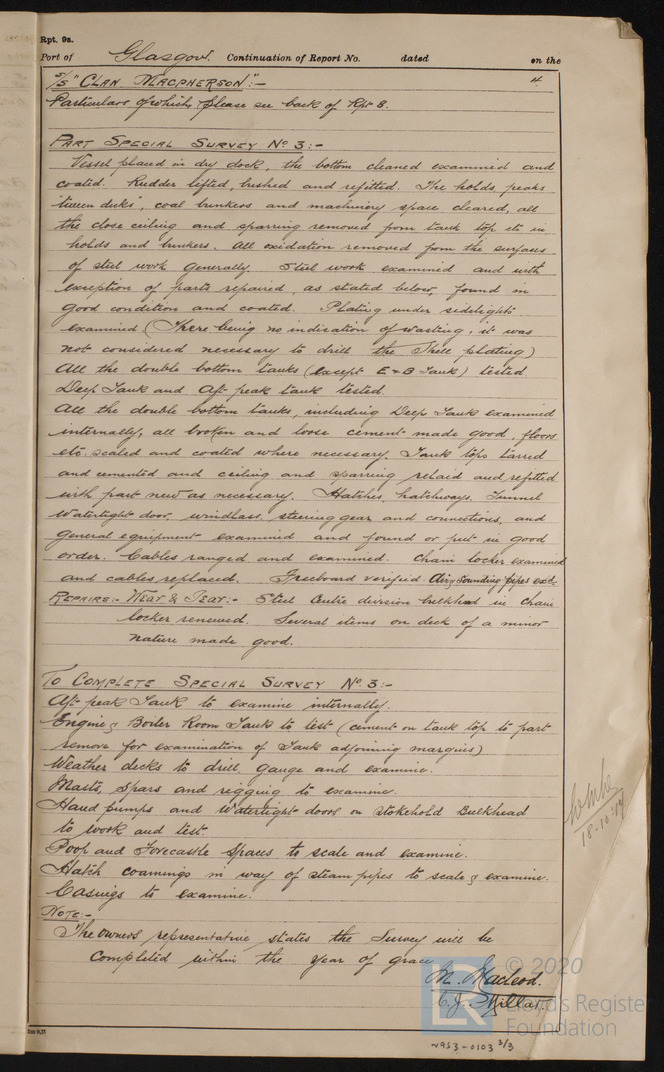 Rpt. 9a.
Port of Glasgow. Continuation of Report No. dated on the
S/S "CLAN MACPHERSON":- 4
Particulars of which, please see back of Rpt 8.
PART SPECIAL SURVEY No 3:-
Vessel placed in dry dock, the bottom cleaned examined and
coated. Rudder lifted, bushed and refitted. The holds, peaks
'tween decks', coal bunkers and machinery space cleared, all
the close ceiling and sparring removed from tank top etc in
holds and bunkers. All oxidation removed from the surfaces
of steel work generally. Steel work examined and with
exception of parts repaired, as stated below, found in
good condition and coated. Plating under sidelights
examined (There being no indication of wasting, it was
not considered necessary to drill the Shell plating)
All the double bottom tanks (except E & B Tank) tested
Deep Tank and Aft peak tank tested.
All the double bottom tanks, including Deep Tank examined
internally, all broken and loose cement made good, floors
etc scaled and coated where necessary. Tank tops tarred
and cemented and ceiling and sparring relaid and refitted
with part new as necessary. Hatches, hatchways, Tunnel
Watertight door, windlass, steering gear and connections, and
general equipment examined and found or put in good
order. Cables ranged and examined. Chain locker examined
and cables replaced. Freeboard verified. Air & Sounding pipes exd.
REPAIRS:- WEAR & TEAR:- Steel Centre division bulkhead in chain
locker renewed. Several items on deck of a minor
nature made good.
TO COMPLETE SPECIAL SURVEY No 3:-
Aft peak Tank to examine internally.
Engine & Boiler Room Tank to test (cement on tank top to part
remove for examination of Tank adjoining margins)
Weather decks to drill, gauge and examine.
Masts, Spars and rigging to examine.
Hand pumps and Watertight doors on Stokehold Bulkhead
to work and test.
Poop and Forecastle Spaces to scale and examine.
Hatch coamings in way of steam pipes to scale & examine.
Casings to examine.
NOTE:-
The owners representative states the Survey will be
completed within the year of grace
M. Macleod.
C. J. Millar.
18-10-17
© 2020
Lloyd's Register
Foundation
LR
W953-0103 3/3